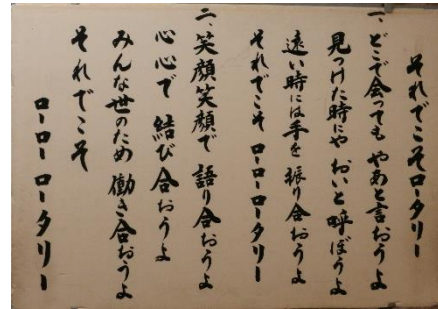 それでこそロータリー
一、どこで会っても やあと言おうよ
見つけた時にや おいと呼ぼうよ
遠い時には手を振り合おうよ
それでこそ ローローロータリー
二、笑顔笑顔で 語り合おうよ
心心で 結び合おうよ
みんな世のため 働き合おうよ
それでこそ
ローロー ロータリー